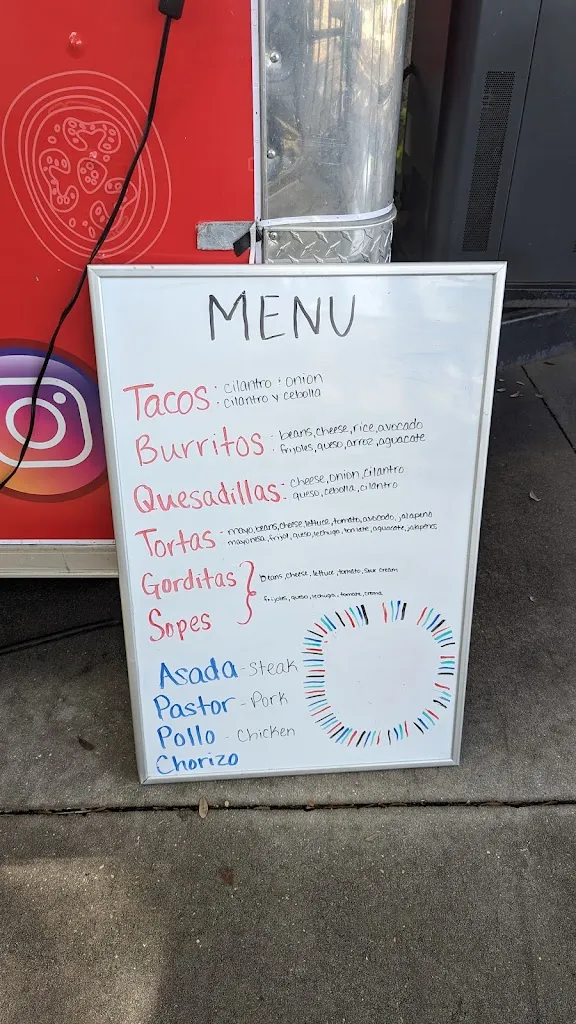 MENU
Tacos : cilantro + onion
: cilantro y cebolla
Burritos - beans, cheese, rice, avocado
: frijoles, queso, arroz, aguacate
Quesadillas - cheese, onion, cilantro
queso, cebolla, cilantro
Tortas - mayo, beans, cheese, lettuce, tomato, avocado, jalapeno
mayonesa, frijol, queso, lechuga, tomate, aguacate, jalapeños
Gorditas } beans, cheese, lettuce, tomato, sour cream
Sopes frijoles, queso, lechuga, tomate, crema
Asada - Steak
Pastor - Pork
Pollo - Chicken
Chorizo